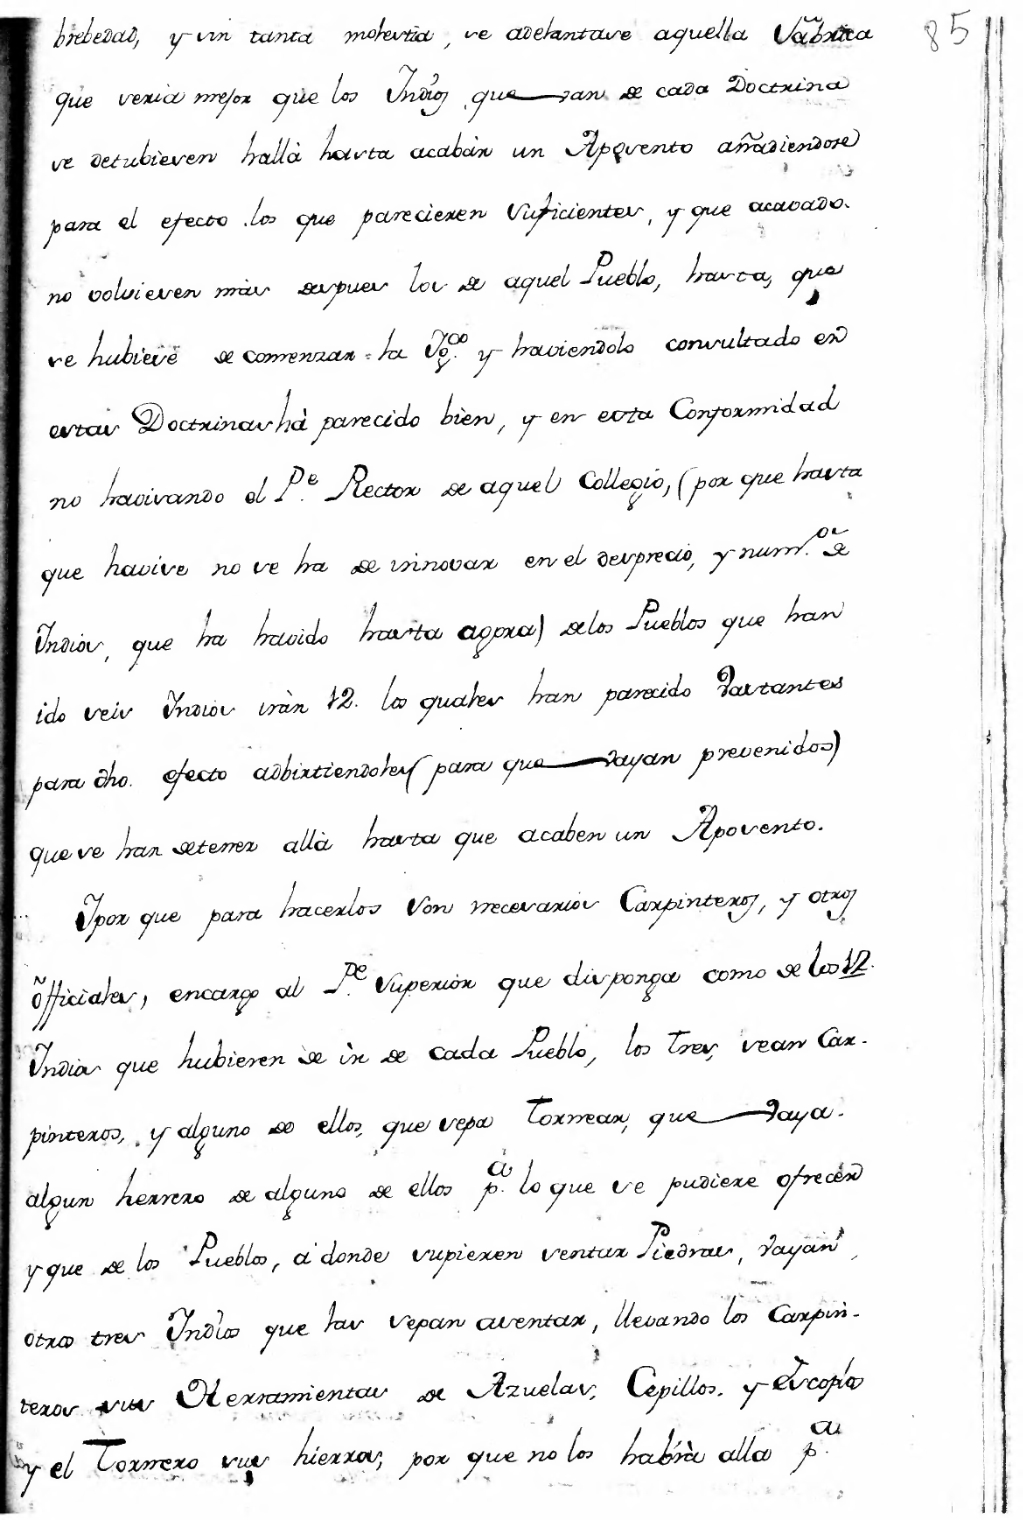 85
brebedad, y sin tanta molestia, se adelantase aquella Fabrica
que seria mejor que los Indios que van de cada Doctrina
se detubiesen hallà hasta acabàr un Aposento añadiendose
para el efecto los que parecieren suficientes, y que acavado
no volviesen màs despues los de aquel Pueblo, hasta, que
se hubiese de comenzar la Yg.ª y haviendolo consultado en
estas Doctrinas hà parecido bien, y en esta Conformidad
no havisando el P.e Rector de aquel Collegio, (por que hasta
que havise no se ha de innovar en el desprecio, y num.o de
Indios, que ha havido hasta agora) de los Pueblos que han
ido seis Indios iràn 12. los quales han parecido Vastantes
para dho. efecto adbirtiendoles (para que vayan prevenidos)
que se han de tener allà hasta que acaben un Aposento.
Ypor que para hacerlos son necesarios Carpinteros, y otros
officiales, encargo al P.e Superior que disponga como de los 12.
Indios que hubieren de ir de cada Pueblo, los tres, sean Car-
pinteros, y alguno de ellos, que sepa Tornear, que vaya
algun herrero de alguno de ellos p.a lo que se pudiere ofrecer
y que de los Pueblos, a donde supieren sentar Piedras, vayan
otros tres Indios que las sepan asentar, llevando los Carpin-
teros sus Herramientas de Azuelas, Cepillos, y Escoplos
y el Tornero sus hierros, por que no los habrà alla p.a